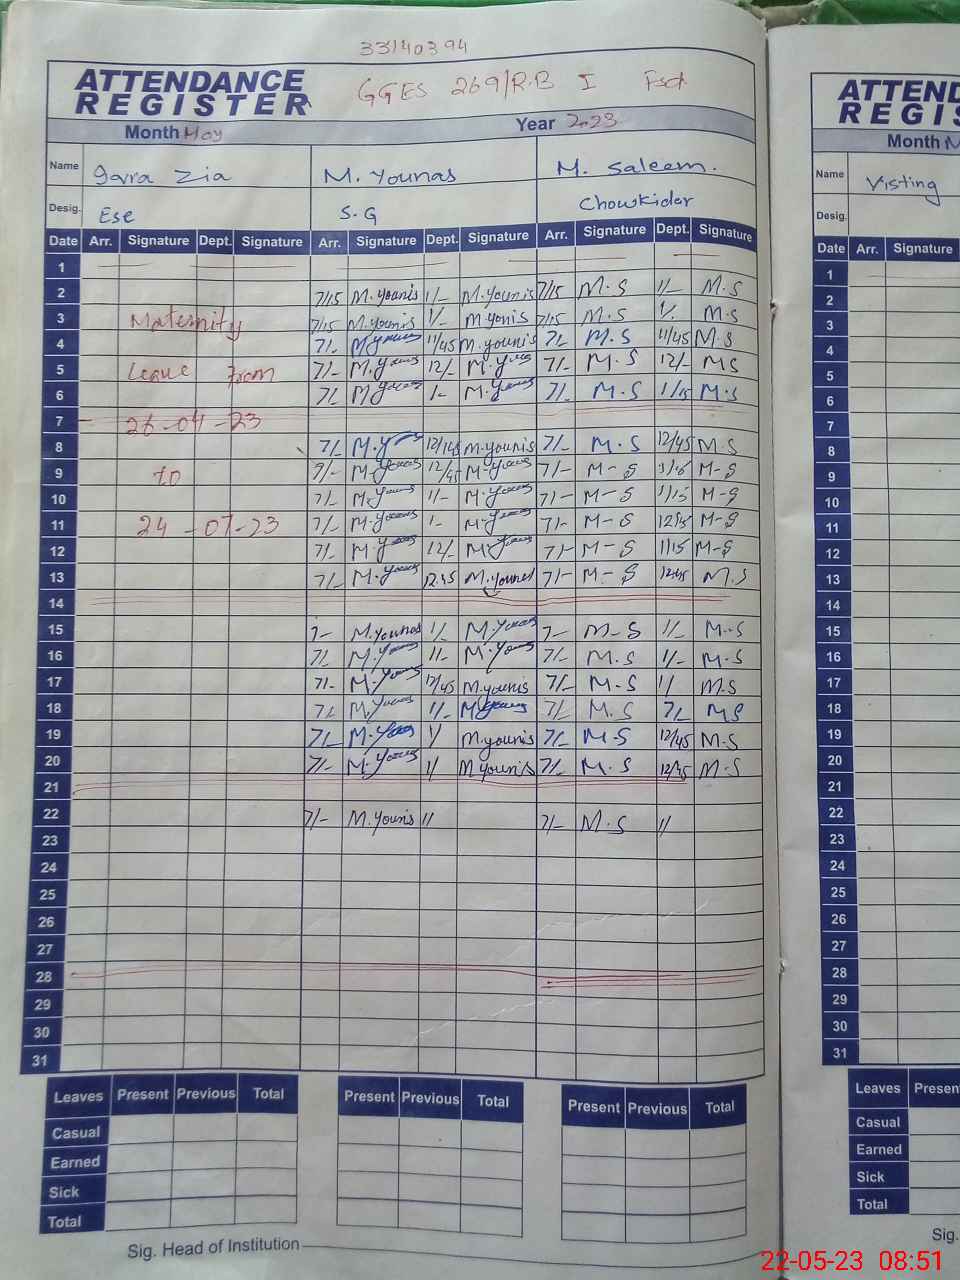 33140394
ATTENDANCE REGISTER
GGES 269/R.B I Fsd
Month May
Year 2023
Name Iqra Zia M. Younas M. Saleem.
Desig. Ese S.G Chowkidar
Date Arr. Signature Dept. Signature Arr. Signature Dept. Signature Arr. Signature Dept. Signature
1
2 7/15 M.younis 1/- M.younis 7/15 M.S 1/- M.S
3 Maternity 7/15 M.younis 1/- M.yonis 7/15 M.S 1/. M.S
4 7/- 11/45 M.younis 7/- M.S 11/45 M.S
5 Leave From 7/- 12/- 7/- M.S 12/- MS
6 7/- 1- 7/- M.S 1/15 M.S
7 26-04-23
8 7/- M.younis 7/- M.S 12/45 M.S
9 to 12/45 7/- M-S M-S
10 7/- 1/- 7/- M-S 1/15 M-S
11 24-07-23 7/- 1- 7/- M-S M-S
12 7/- 12/- 7/- M-S 1/15 M-S
13 7/- 12.45 7/- M-S 12.45 M.S
14
15 7- M.younas 1/- 7- M-S 1/- M..S
16 7/- 1/- 7/- M.S 1/- M.S
17 7/- 12/45 M.younis 7/- M.S 1/ M.S
18 7/- 1/- 7/- M.S 7/- MS
19 7/- 1/ M.younis 7/- M.S 12/45 M.S
20 7/- 1/ M.younis 7/- M.S 12/45 M.S
21
22 7/- M.younis 1/ 7/- M.S 1/
23
24
25
26
27
28
29
30
31
Leaves Present Previous Total Present Previous Total Present Previous Total
Casual
Earned
Sick
Total
Sig. Head of Institution
ATTEND
REGIS
Month M
Name Visting
Desig.
Date Arr. Signature
1
2
3
4
5
6
7
8
9
10
11
12
13
14
15
16
17
18
19
20
21
22
23
24
25
26
27
28
29
30
31
Leaves Presen
Casual
Earned
Sick
Total
Sig.
22-05-23 08:51